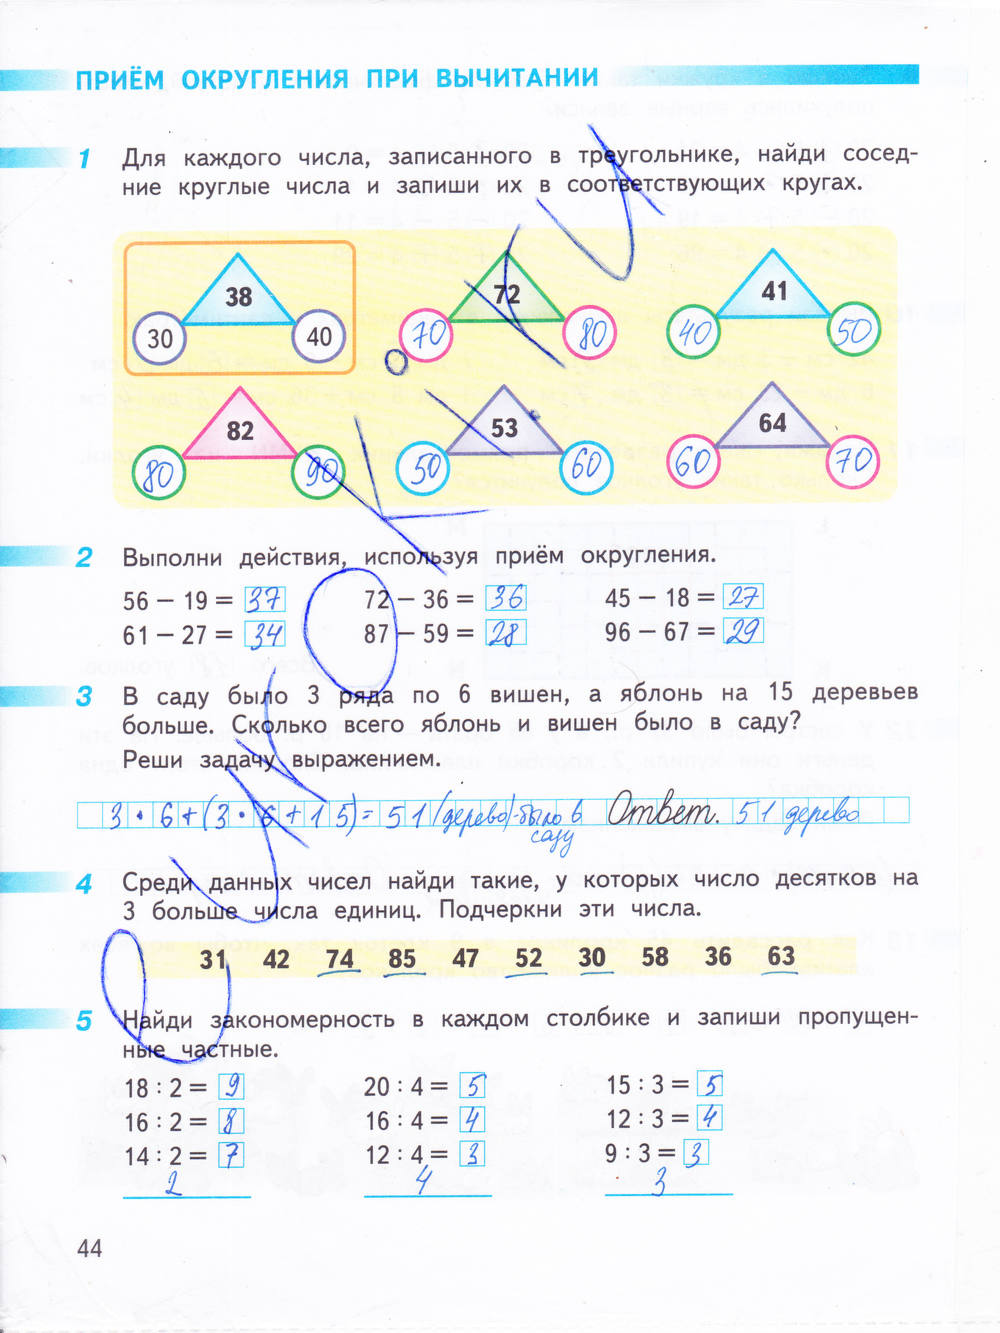 ПРИЁМ ОКРУГЛЕНИЯ ПРИ ВЫЧИТАНИИ
1 Для каждого числа, записанного в треугольнике, найди сосед-
ние круглые числа и запиши их в соответствующих кругах.
38 72 41
30 40 70 80 40 50
82 53 64
80 90 50 60 60 70
2 Выполни действия, используя приём округления.
56 – 19 = 37 72 – 36 = 36 45 – 18 = 27
61 – 27 = 34 87 – 59 = 28 96 – 67 = 29
3 В саду было 3 ряда по 6 вишен, а яблонь на 15 деревьев
больше. Сколько всего яблонь и вишен было в саду?
Реши задачу выражением.
3 • 6 + (3 • 6 + 15) = 51 (дерево) - было в Ответ. 51 дерево
саду
4 Среди данных чисел найди такие, у которых число десятков на
3 больше числа единиц. Подчеркни эти числа.
31 42 74 85 47 52 30 58 36 63
5 Найди закономерность в каждом столбике и запиши пропущен-
ные частные.
18 : 2 = 9 20 : 4 = 5 15 : 3 = 5
16 : 2 = 8 16 : 4 = 4 12 : 3 = 4
14 : 2 = 7 12 : 4 = 3 9 : 3 = 3
2 4 3
44